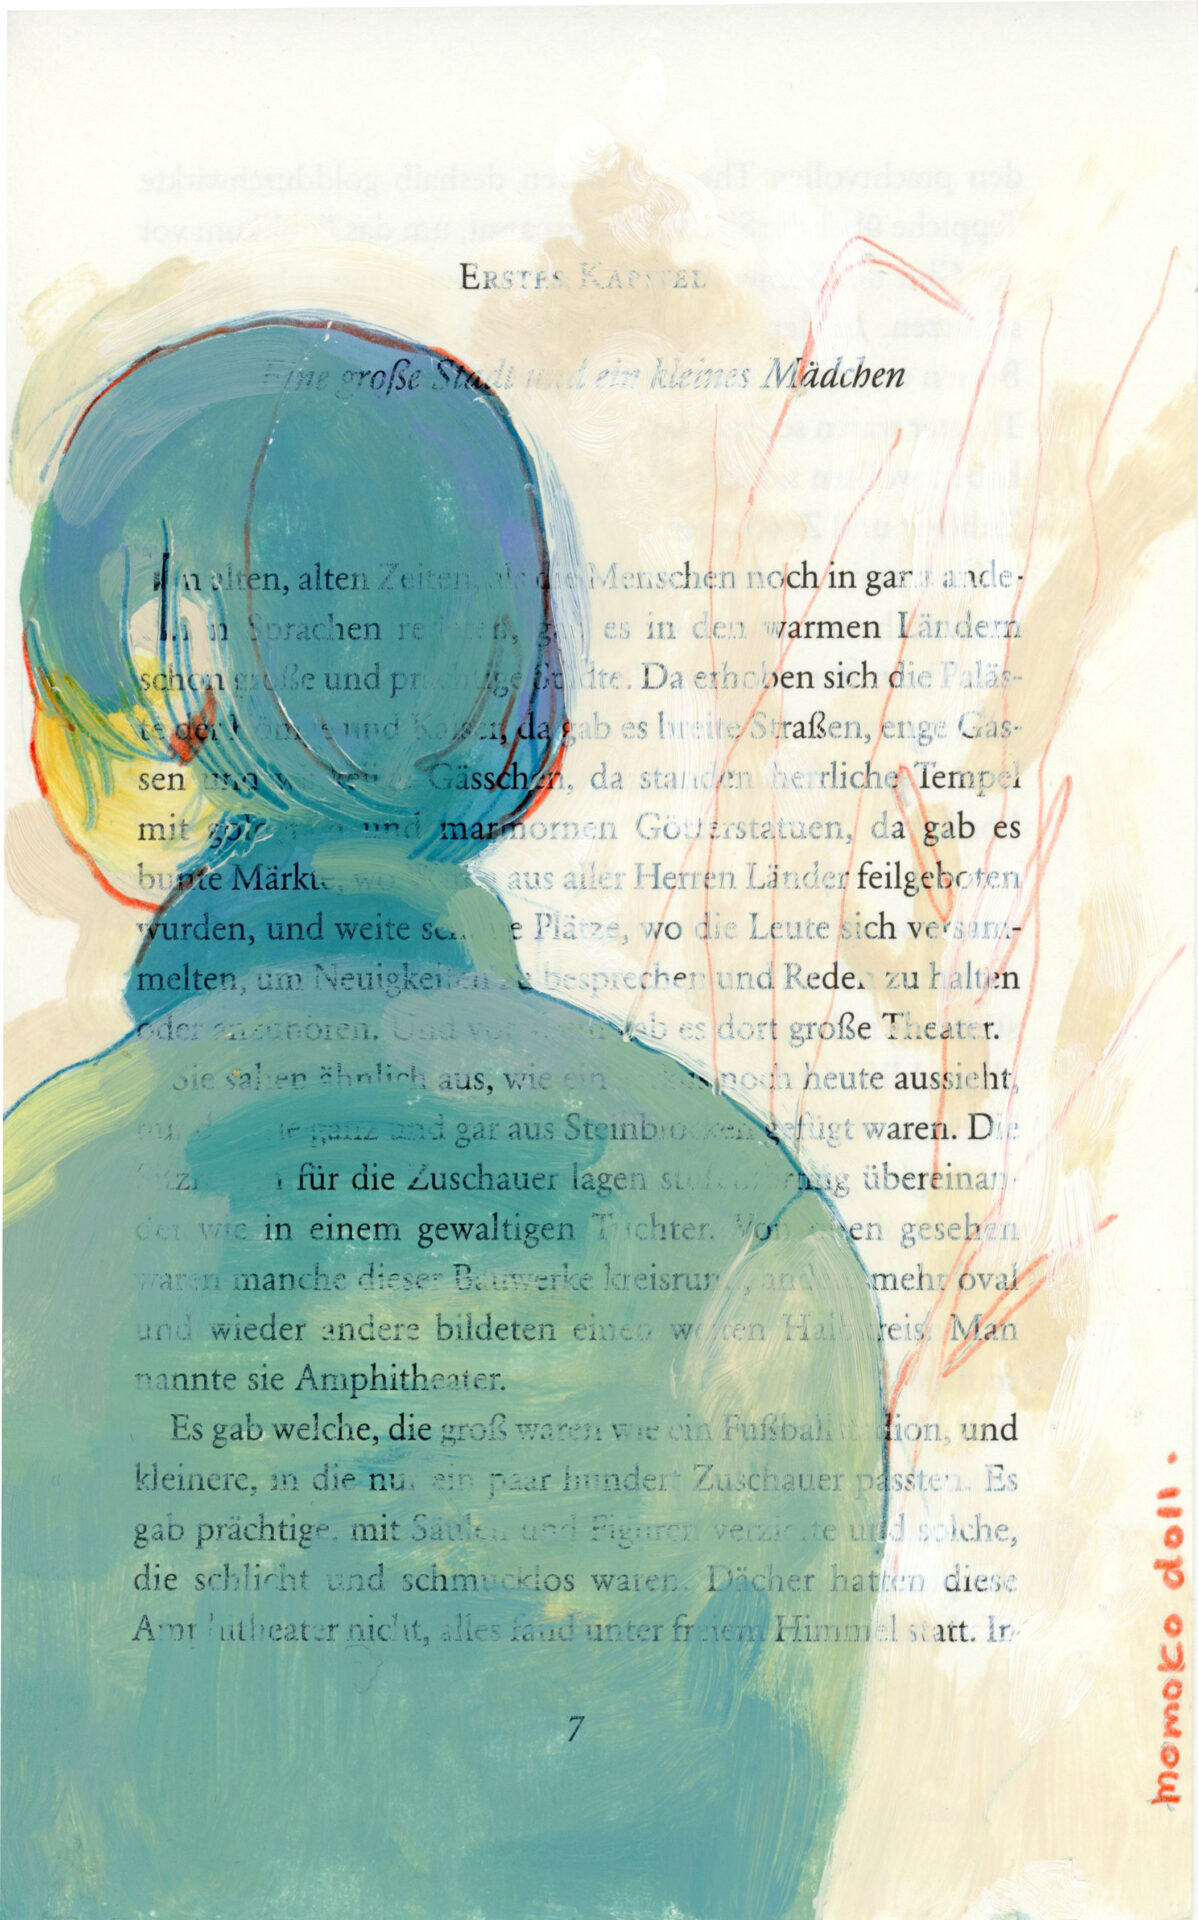 ERSTES KAPITEL
Eine große Stadt und ein kleines Mädchen
In alten, alten Zeiten, als die Menschen noch in ganz ande-
ren Sprachen redeten, gab es in den warmen Ländern
schon große und prächtige Städte. Da erhoben sich die Paläs-
te der Könige und Kaiser, da gab es breite Straßen, enge Gas-
sen und Gässchen, da standen herrliche Tempel
mit goldenen und marmornen Götterstatuen, da gab es
bunte Märkte, wo aus aller Herren Länder feilgeboten
wurden, und weite schöne Plätze, wo die Leute sich versam-
melten, um Neuigkeiten zu besprechen und Reden zu halten
oder anzuhören. Und vor gab es dort große Theater.
Sie sahen ähnlich aus, wie ein noch heute aussieht,
nur ganz und gar aus Steinblöcken gefügt waren. Die
für die Zuschauer lagen stufenförmig übereinan-
der wie in einem gewaltigen Trichter. Von oben gesehen
waren manche dieser Bauwerke kreisrund, andere mehr oval
und wieder andere bildeten einen weiten Halbkreis. Man
nannte sie Amphitheater.
Es gab welche, die groß waren wie ein Fußballstadion, und
kleinere, in die nur ein paar hundert Zuschauer passten. Es
gab prächtige, mit Säulen und Figuren verzierte und solche,
die schlicht und schmucklos waren. Dächer hatten diese
Amphitheater nicht, alles fand unter freiem Himmel statt. In-
7
momoko doll.